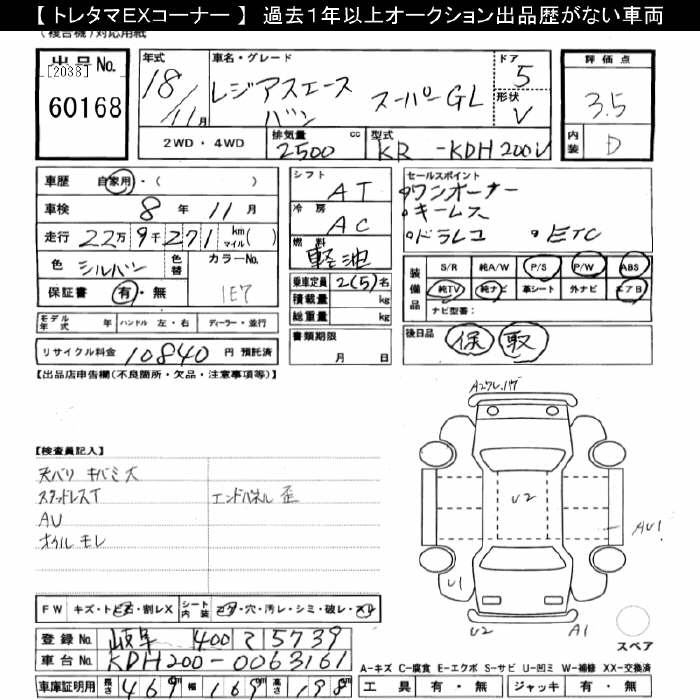 【 トレタマEXコーナー 】 過去1年以上オークション出品歴がない車両
(複合機)対応用紙
出品No.
[2038]
60168
年式
18/11月
車名・グレード
レジアスエース
バン
スーパーGL
ドア
5
形状
V
評価点
3.5
内装
D
2WD・4WD
排気量
2500 cc
型式
KR -KDH200V
車歴 自家用・( )
車検 8 年 11 月
走行 22万9千271 km マイル( )
色 シルバー
色替
カラーNo.
1E7
保証書 有・無
モデル年式 年 ハンドル 左・右 ディーラー・並行
リサイクル料金 10840 円 預託済
シフト AT
冷房 AC
燃料 軽油
乗車定員 2(5) 名
積載量 kg
総重量 kg
書類期限
月 日
セールスポイント
・ワンオーナー
・キーレス
・ドラレコ ・ETC
装備品
S/R 純A/W P/S P/W ABS
純TV 純ナビ 革シート 外ナビ エアB
ナビ型番:
後日品 保 取
【出品店申告欄(不良箇所・欠品・注意事項等)】
【検査員記入】
天バリ キバミ大
スタッドレスT
エンドパネル 歪
AU
オイル モレ
FW キズ・トビ石・割レX
シート内装 コゲ・穴・汚レ・シミ・破レ・スレ
登録No. 岐阜 400 て 5739
車台No. KDH200-0063161
車庫証明用 長さ 469cm 幅 169cm 高さ 198cm
Aワレ.ハゲ
U2
AU1
U1
U2
A1
スペア
A-キズ C-腐食 E-エクボ S-サビ U-凹ミ W-補修 XX-交換済
工具 有・無 ジャッキ 有・無